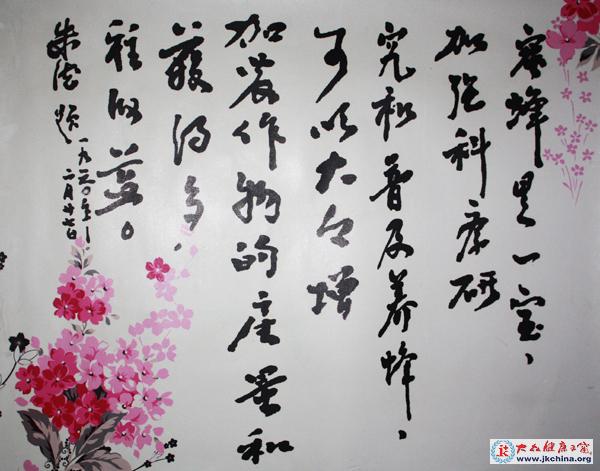 蜜蜂是一宝、
加强科学研
究和普及养蜂、
可以大々增
加農作物的产量和
獲得多
種收益。
朱德 题
一九六〇年
二月廿日
大众健康之窗
www.jkchina.org